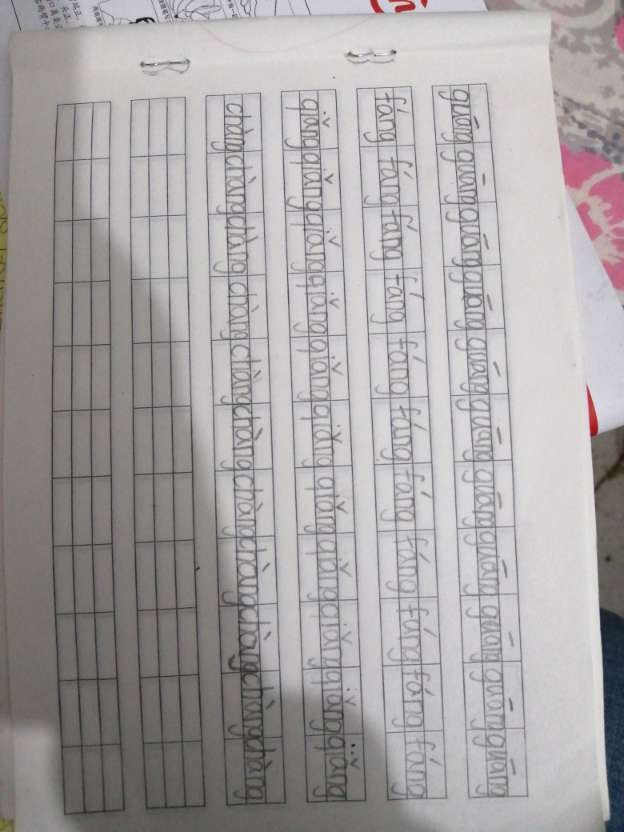 guāng guāng guāng guāng guāng guāng guāng guāng guāng guāng guāng
fáng fáng fáng fáng fáng fáng fáng fáng fáng fáng fáng
qiǎng qiǎng qiǎng qiǎng qiǎng qiǎng qiǎng qiǎng qiǎng qiǎng qiǎng
chàng chàng chàng chàng chàng chàng chàng chàng chàng chàng chàng